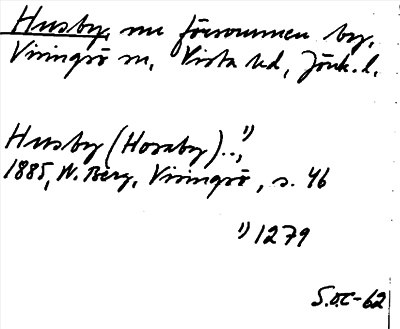 Husby, nu försvunnen by,
Visingsö sn, Vista hd, Jönk. l.
Husby (Horsaby)..,¹⁾
1885, W. Berg, Visingsö, s. 46
¹⁾ 1279
S.O.C-62